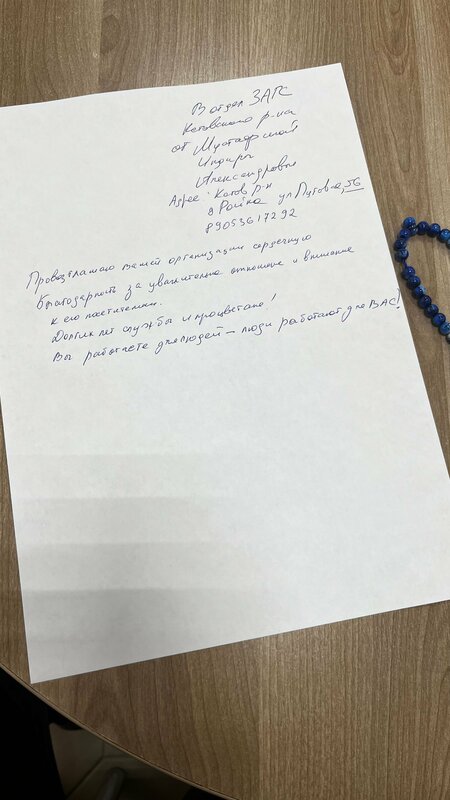 В отдел ЗАГС
Котовского р-на
от Мустафиной
Индиры
Александровны
Адрес: Котов р-н
ул Луговая, 56
89053617292
Провозглашаю вашей организации сердечную
благодарность за уважительно отношение и внимание
к его посетителям.
Долгих лет службы и процветане!
Вы работаете для людей – люди работают для ВАС!